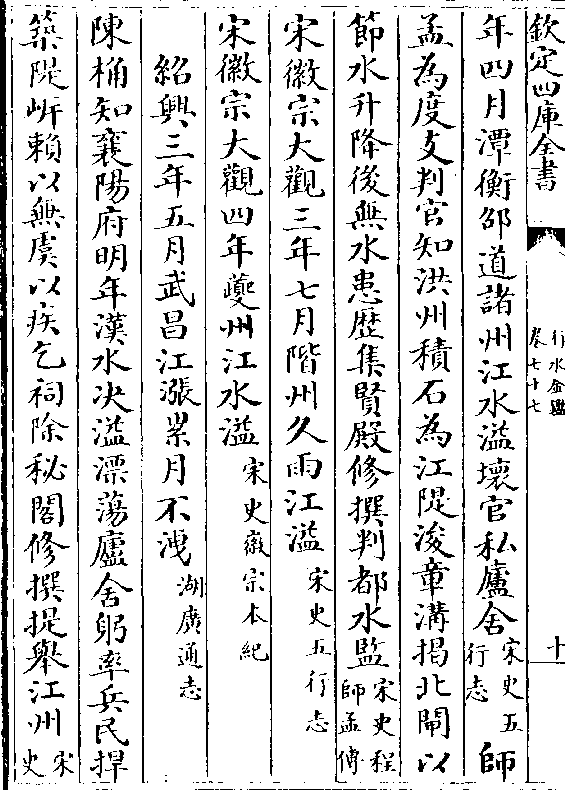 欽定四庫全書
行水金鑑
卷七十七
十
年四月潭衡邵道諸州江水溢壞官私廬舍宋史五行志師
孟為度支判官知洪州積石為江隄浚章溝揭北閘以
節水升降後無水患歴集賢殿修撰判都水監宋史程師孟傳
宋徽宗大觀三年七月階州久雨江溢宋史五行志
宋徽宗大觀四年夔州江水溢宋史徽宗本紀
紹興三年五月武昌江漲累月不洩湖廣通志
陳桷知襄陽府明年漢水決溢漂蕩廬舍躬率兵民捍
築隄岍賴以無虞以疾乞祠除秘閣修撰提舉江州宋史